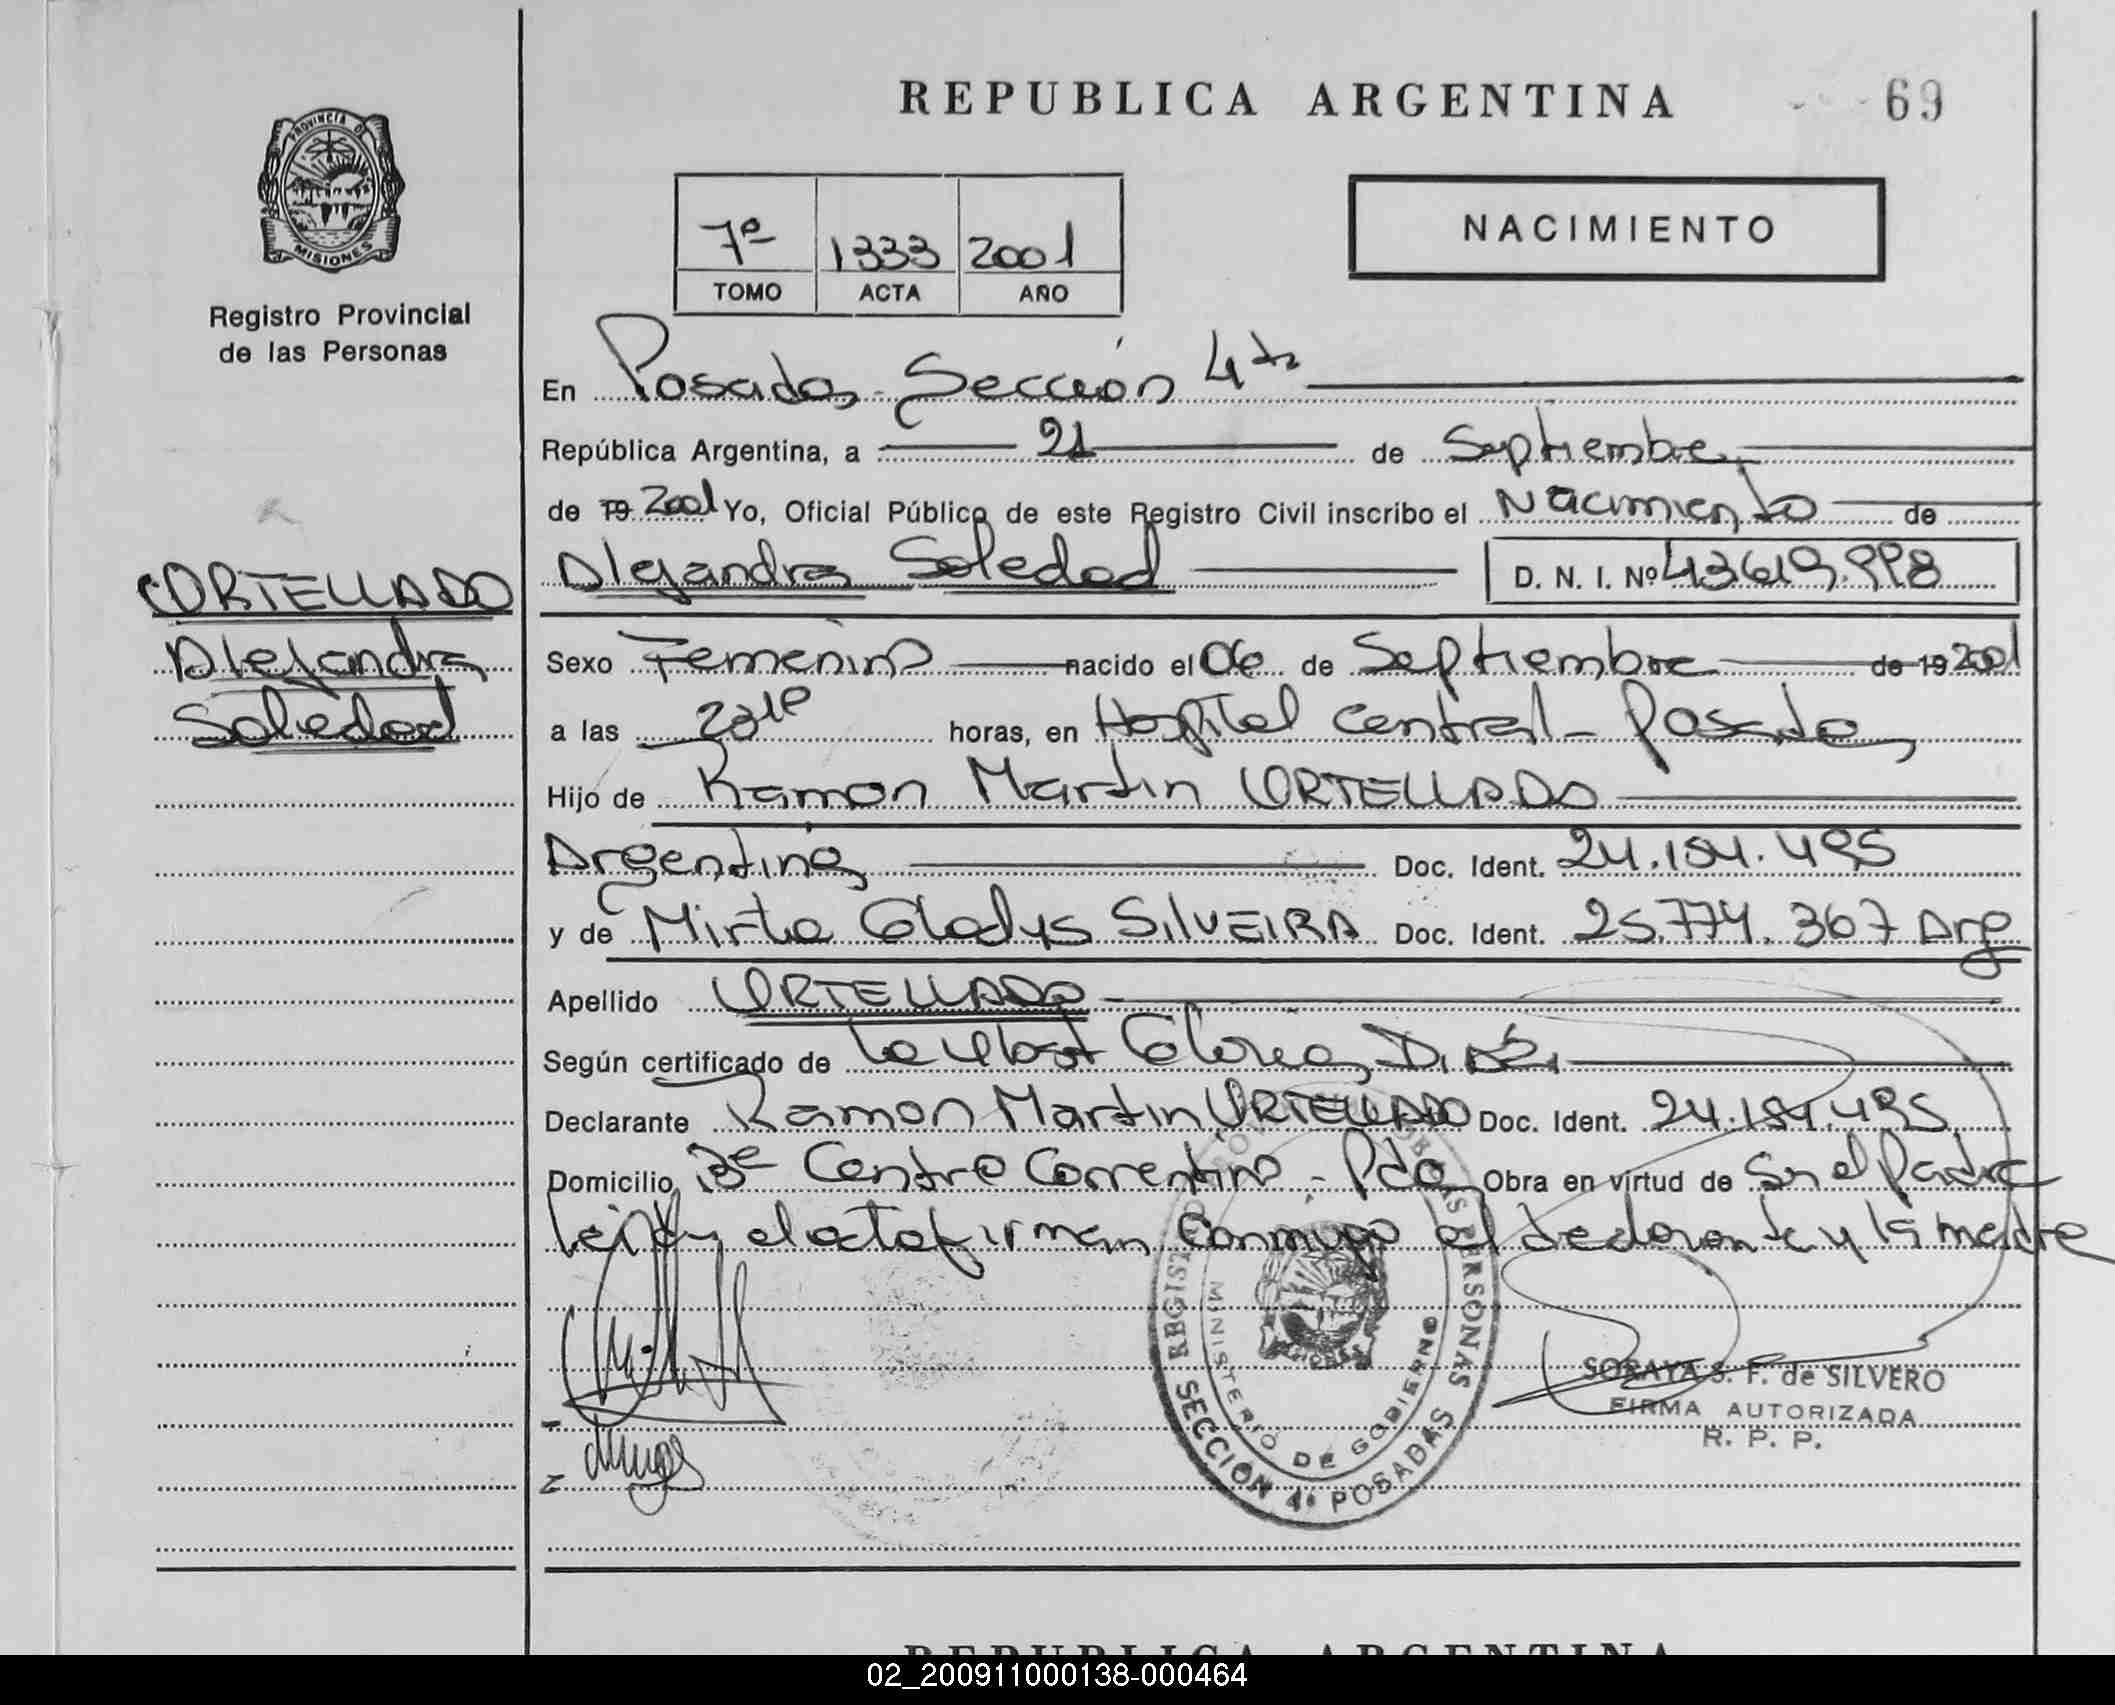 REPUBLICA ARGENTINA
69
PROVINCIA DE
MISIONES
Registro Provincial
de las Personas
7º 1333 2001
TOMO ACTA AÑO
NACIMIENTO
En Posadas - Sección 4ta
República Argentina, a 21 de Septiembre
de 19 2001 Yo, Oficial Público de este Registro Civil inscribo el Nacimiento de
Alejandra Soledad D. N. I. Nº 43619.998
ORTELLADO
Alejandra
Soledad
Sexo Femenino nacido el 06 de Septiembre de 19 2001
a las horas, en Hospital Central - Posadas
Hijo de Ramon Martin ORTELLADO
Argentina Doc. Ident. 24.154.495
y de Mirta Gladys SILVEIRA Doc. Ident. 25.774.367 Arg
Apellido ORTELLADO
Según certificado de la Obst Gloria
Declarante Ramon Martin ORTELLADO Doc. Ident. 24.154.495
Domicilio Centro Correntino - Pdas Obra en virtud de Ser el Padre
Leída el acta firman conmigo el declarante y la madre
REGISTRO PROVINCIAL DE LAS PERSONAS
MINISTERIO DE GOBIERNO
SECCION 4ª POSADAS
SORAYA S. F. de SILVERO
FIRMA AUTORIZADA
R. P. P.
REPUBLICA ARGENTINA
02_200911000138-000464